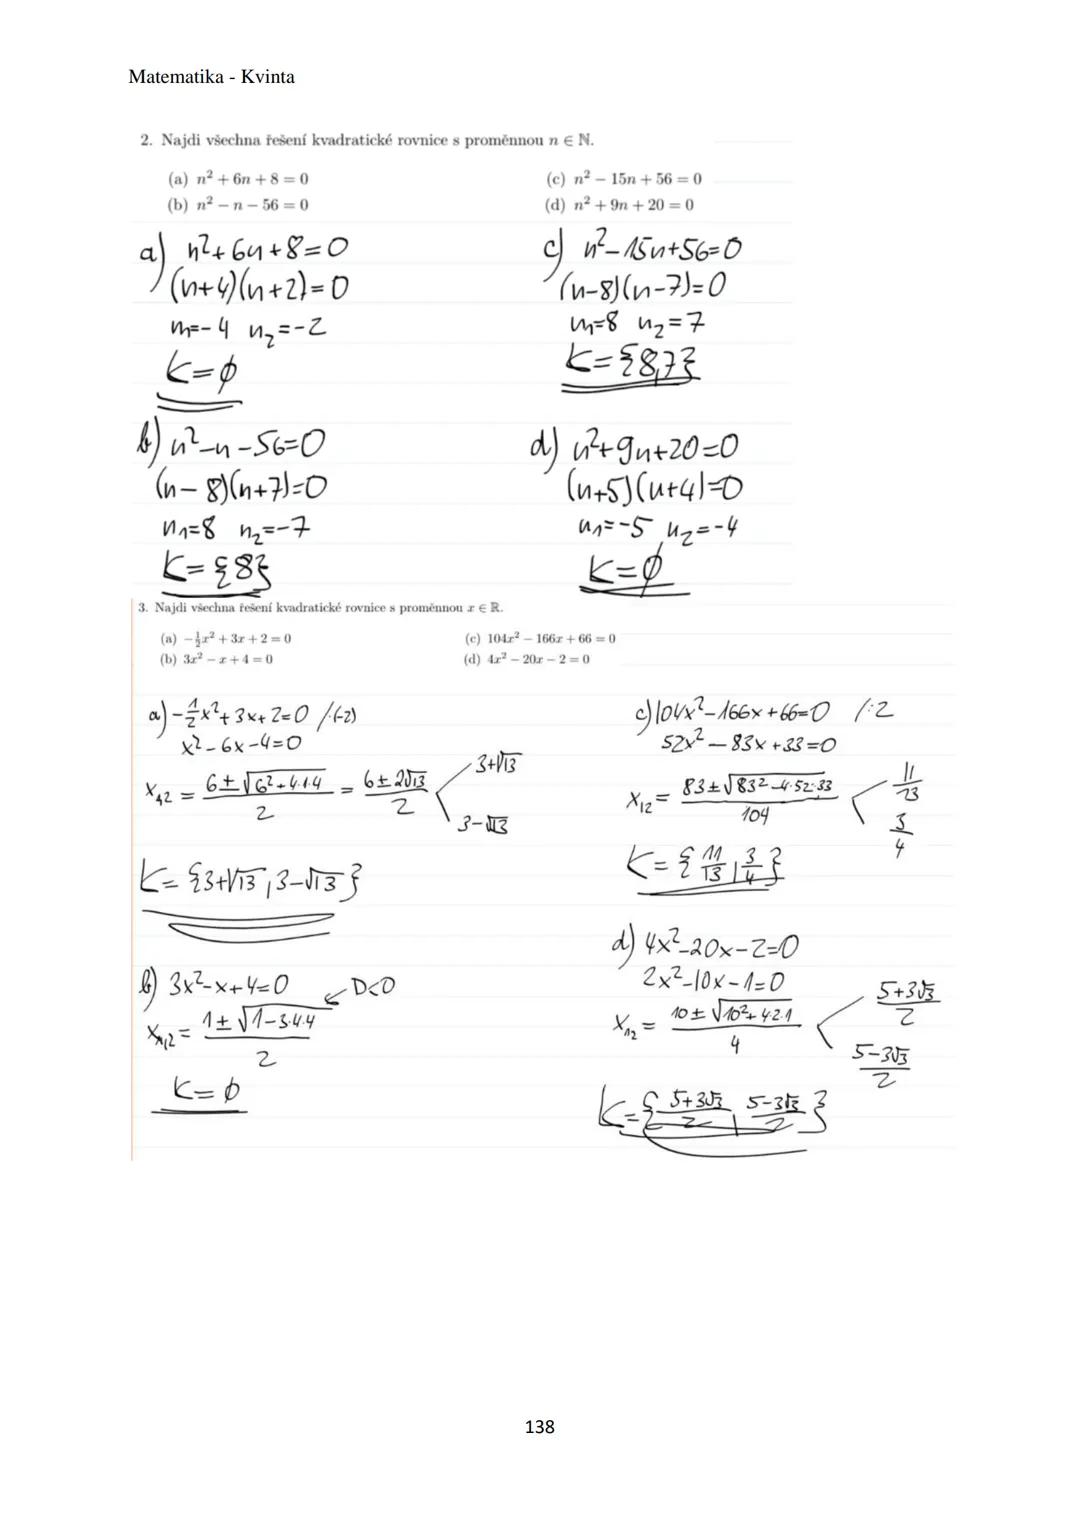 Matematika - Kvinta
2. Najdi všechna řešení kvadratické rovnice s proměnnou n ∈ ℕ.
(a) n² + 6n + 8 = 0
(b) n² − n − 56 = 0
(c) n² − 15n + 56 = 0
(d) n² + 9n + 20 = 0
a) n²+6n+8=0
(n+4)(n+2)=0
n₁=-4 n₂=-2
K=∅
c) n²-15n+56=0
(n-8)(n-7)=0
n₁=8 n₂=7
K={8,7}
b) n²-n-56=0
(n-8)(n+7)=0
n₁=8 n₂=-7
K={8}
d) n²+9n+20=0
(n+5)(n+4)=0
n₁=-5 n₂=-4
K=∅
3. Najdi všechna řešení kvadratické rovnice s proměnnou x ∈ ℝ.
(a) −½x² + 3x + 2 = 0
(b) 3x² − x + 4 = 0
(c) 104x² − 166x + 66 = 0
(d) 4x² − 20x − 2 = 0
a) -½x²+3x+2=0 /·(-2)
x²-6x-4=0
x₁,₂ = (6±√(6²+4·1·4))/2 = (6±2√13)/2
3+√13
3-√13
K={3+√13, 3-√13}
b) 3x²-x+4=0
D<0
x₁,₂ = (1±√(1-3·4·4))/2
K=∅
c) 104x²-166x+66=0 /:2
52x²-83x+33=0
x₁₂ = (83±√(83²-4·52·33))/104
11/13
3/4
K={11/13, 3/4}
d) 4x²-20x-2=0
2x²-10x-1=0
x₁₂ = (10±√(10²+4·2·1))/4
(5+3√3)/2
(5-3√3)/2
K={(5+3√3)/2, (5-3√3)/2}
138